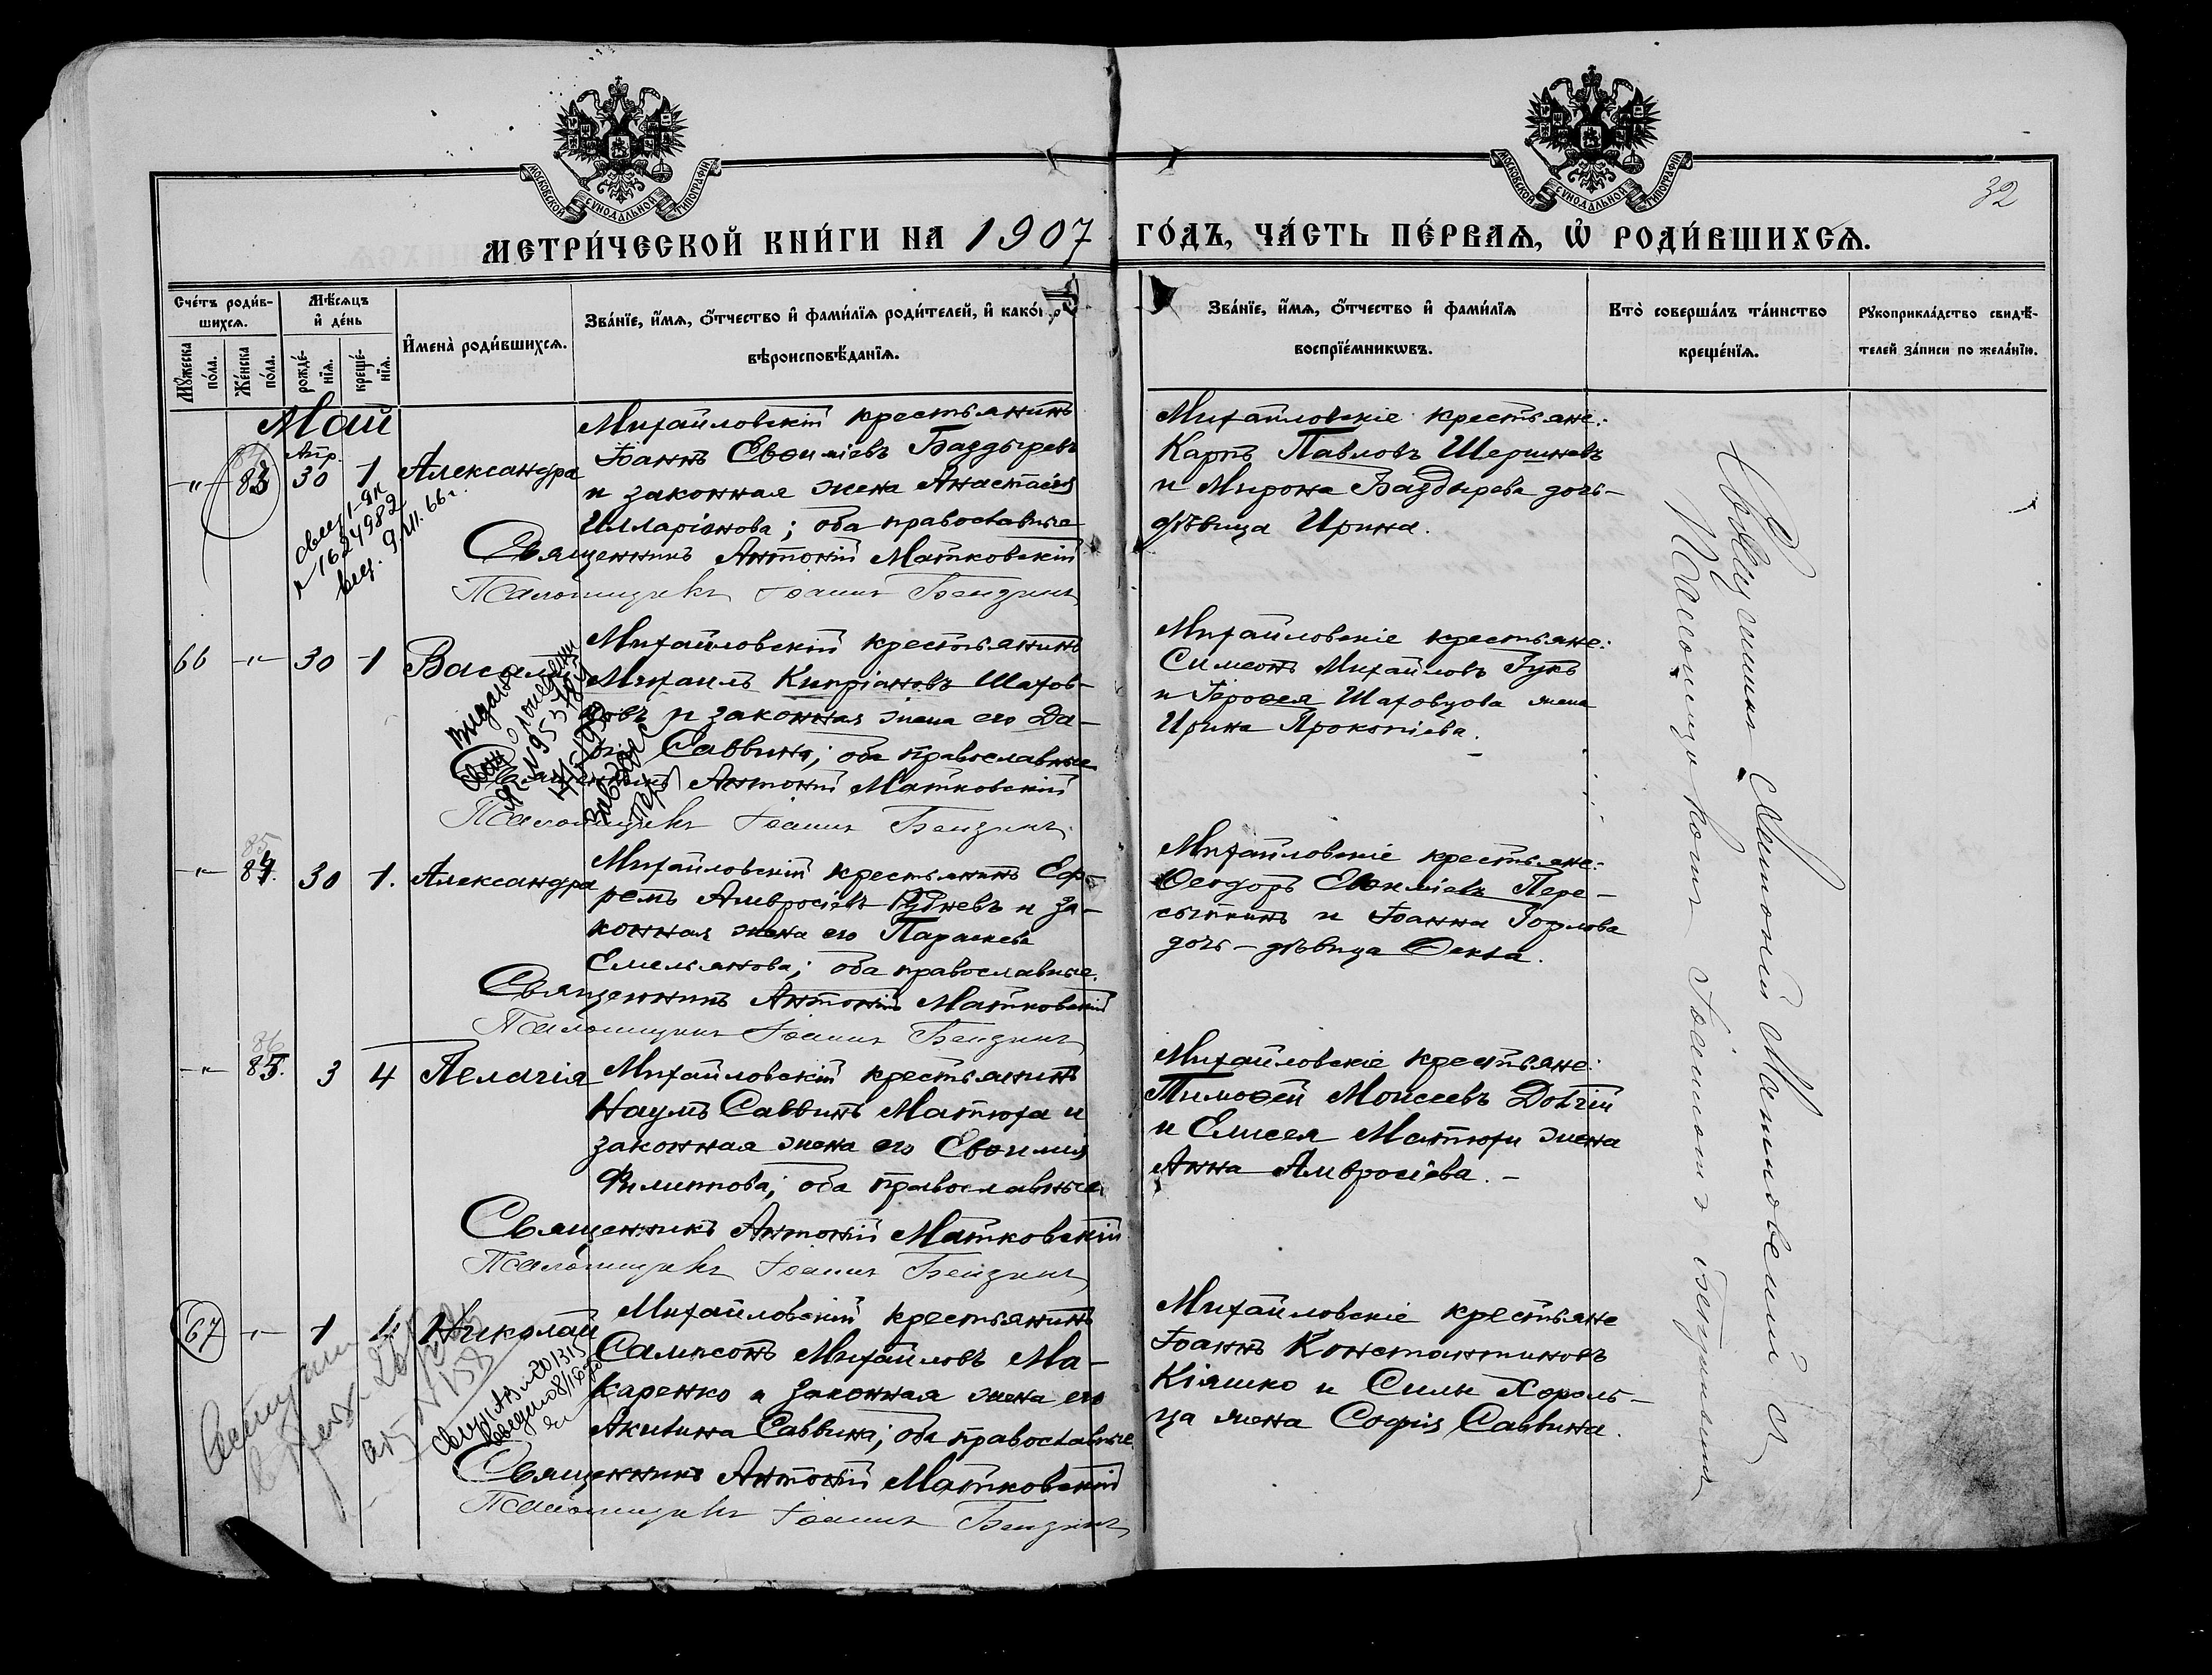 МОСКОВСКОЙ СѴНОДАЛЬНОЙ ТИПОГРАФІИ
МОСКОВСКОЙ СѴНОДАЛЬНОЙ ТИПОГРАФІИ
32
МЕТРИ́ЧЕСКОЙ КНИ́ГИ НА 1907 ГО́ДЪ, ЧА́СТЬ ПЕ́РВАѦ, Ѡ҆ РОДИ́ВШИХСѦ.
Сче́тъ роди́в-
шихсѧ.
Мꙋ́жеска по́ла.
Же́нска по́ла.
Мѣ́сѧцъ
и҆ де́нь
рожде́-
нїѧ.
креще́-
нїѧ.
И҆мена̀ роди́вшихсѧ.
Зва́нїе, и҆́мѧ, ѻ҆́тчество и҆ фами́лїѧ роди́телей, и҆ како́
вѣроисповѣ́данїѧ.
Зва́нїе, и҆́мѧ, ѻ҆́тчество и҆ фами́лїѧ
воспрїе́мникѡвъ.
Кто̀ соверша́лъ та́инство
креще́нїѧ.
Рꙋкоприкла́дство свидѣ́-
телей за́писи по жела́нїю.
Май
Апр.
-"- 83 30 1 Александра
Михайловскій крестьянинъ
Іоаннъ Евѳиміевъ Баздыревъ
и законная жена Анастасія
Илларіонова; оба православные
Священникъ Антоній Матковскій
Псаломщикъ Іоаннъ Бендинъ
Михайловскіе крестьяне:
Карпъ Павловъ Шершневъ
и Мирона Баздырева дочь-
дѣвица Ирина.
№ 1624982
9/III. 66 г.
66 -"- 30 1 Василій
Михайловскій крестьянинъ
Михаилъ Кипріановъ Шахов-
цовъ и законная жена его Да-
рія Саввина; оба православные
Священникъ Антоній Матковскій
Псаломщикъ Іоаннъ Бендинъ
Михайловскіе крестьяне:
Симеонъ Михайловъ Гукъ
и Іероѳея Шаховцова жена
Ирина Прокопіева.
85
-"- 84. 30 1. Александра
Михайловскій крестьянинъ Еф-
ремъ Амвросіевъ Рудневъ и за-
конная жена его Параскева
Емельянова; оба православные.
Священникъ Антоній Матковскій
Псаломщикъ Іоаннъ Бендинъ
Михайловскіе крестьяне:
Ѳеодоръ Евѳиміевъ Пере-
сыпкинъ и Іоанна Горлова
дочь-дѣвица Ѳекла.
86
-"- 85. 3 4 Пелагія
Михайловскій крестьянинъ
Наумъ Саввинъ Матюха и
законная жена его Евѳимія
Филиппова; оба православные.
Священникъ Антоній Матковскій
Псаломщикъ Іоаннъ Бендинъ
Михайловскіе крестьяне:
Тимоѳей Моисеевъ Довгій
и Елисея Матюхи жена
Анна Амвросіева. -
67 -"- 1 4 Николай
Михайловскій крестьянинъ
Сампсонъ Михайловъ Ма-
каренко и законная жена его
Акилина Саввина; оба православные
Священникъ Антоній Матковскій
Псаломщикъ Іоаннъ Бендинъ
Михайловскіе крестьяне
Іоаннъ Константиновъ
Кіяшко и Силы Хороль-
ца жена Софія Саввина.
№ 158
Священникъ Антоній Матковскій и
Псаломщикомъ Іоанномъ Бендинымъ